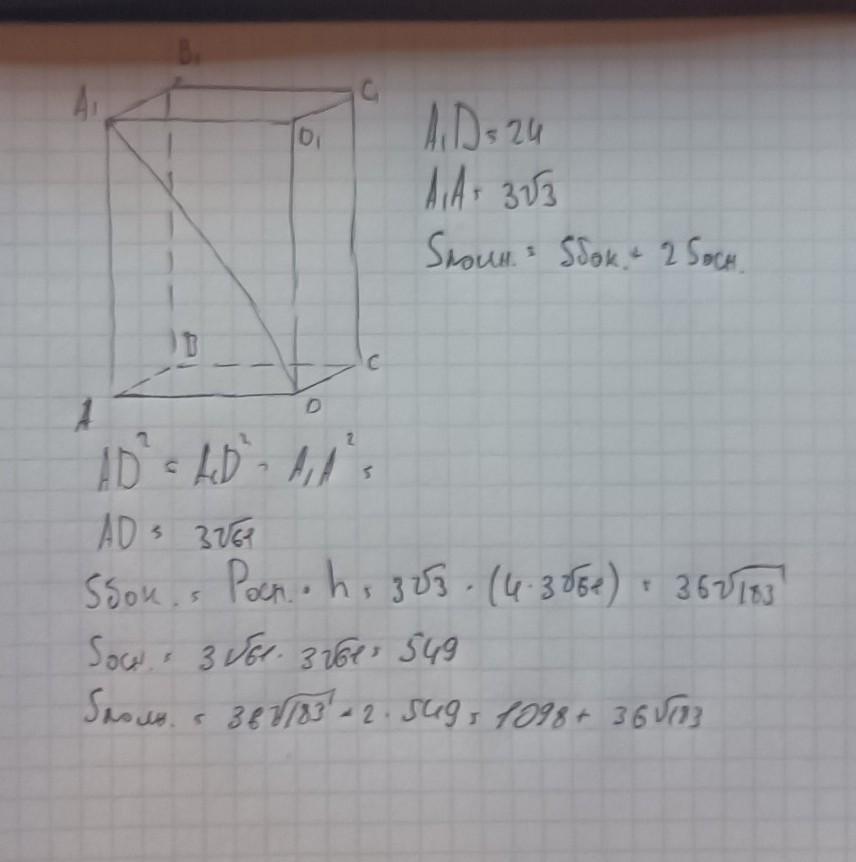 B₁
A₁
C₁
D₁
A₁D = 24
A₁A = 3√3
Sполн. = Sбок. + 2 Sосн.
B
C
A
D
AD² = A₁D² - A₁A² =
AD = 3√61
Sбок. = Pосн. · h = 3√3 · (4 · 3√61) = 36√183
Sосн. = 3√61 · 3√61 = 549
Sполн. = 36√183 + 2 · 549 = 1098 + 36√183